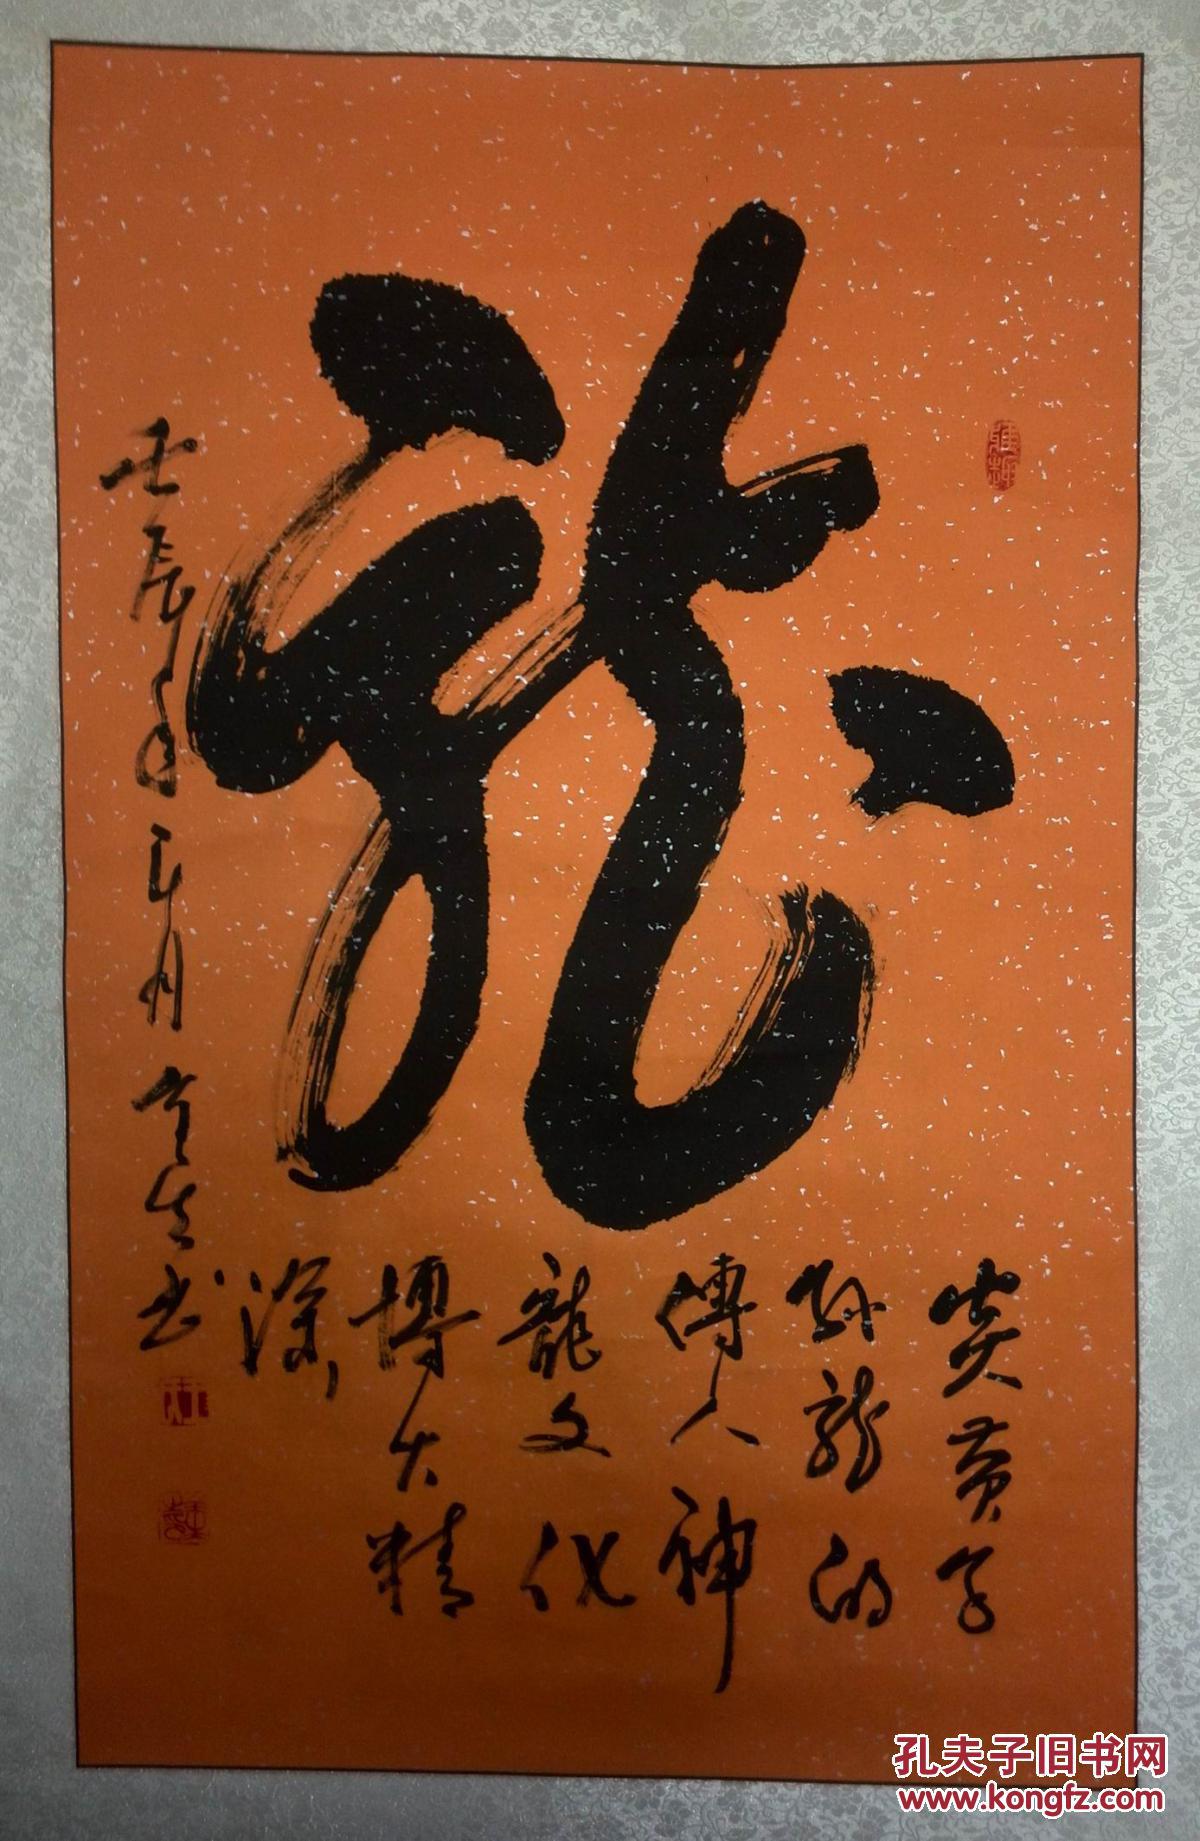 龙
炎黄子
孙龙的
傳人神
龍文化
博大精
深
壬辰年正月
生书
孔夫子旧书网
www.kongfz.com